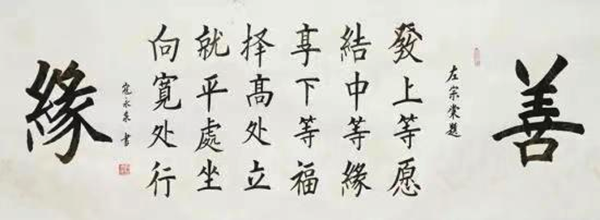 善
左宗棠题
發上等愿
結中等緣
享下等福
择髙处立
就平處坐
向寬处行
書
緣